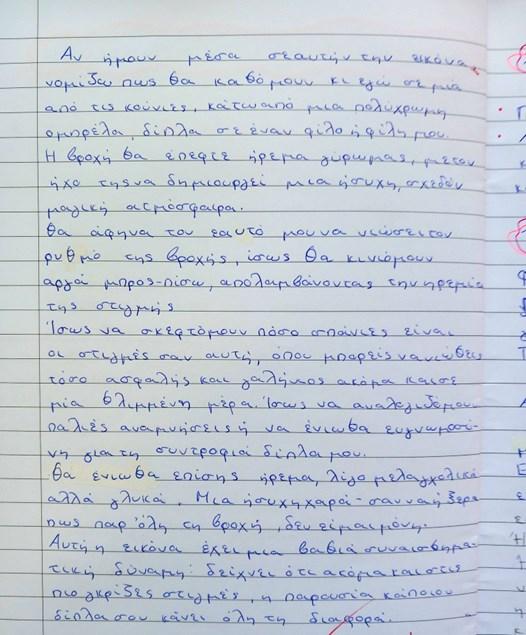 Αν ήμουν μέσα σεαυτήν την εικόνα,
νομίζω πως θα καθόμουν κι εγώ σε μιά
από τις κούνιες, κάτω από μια πολύχρωμη
ομπρέλα, δίπλα σε έναν φίλο ή φίλη μου.
Η βροχή θα έπεφτε ήρεμα γύρω μας, με τον
ήχο της να δημιουργεί μια ήσυχη, σχεδόν
μαγική ατμόσφαιρα.
Θα άφηνα τον εαυτό μου να νιώσει τον
ρυθμό της βροχής, ίσως θα κινιόμουν
αργά μπρος-πίσω, απολαμβάνοντας την ηρεμία
της στιγμής
Ίσως να σκεφτόμουν πόσο σπάνιες είναι
οι στιγμές σαν αυτή, όπου μπορείς να νιώθεις
τόσο ασφαλής και γαλήνιος ακόμα και σε
μία θλιμμένη μέρα. Ίσως να αναλογιζόμουν
παλιές αναμνήσεις ή να ένιωθα ευγνωμοσύ-
νη για τη συντροφιά δίπλα μου.
Θα ένιωθα επίσης ήρεμα, λίγο μελαγχολικά
αλλά γλυκά. Μια ήσυχη χαρά - σαν να ήξερα
πως παρ'όλη τη βροχή, δεν είμαι μόνη.
Αυτή η εικόνα έχει μια βαθιά συναισθημα-
τική δύναμη: δείχνει ότι ακόμα και στις
πιο γκρίζες στιγμές, η παρουσία κάποιου
δίπλα σου κάνει όλη τη διαφορά.